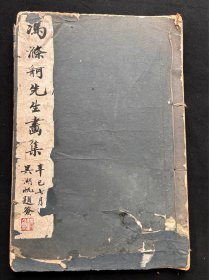 馮滌舸先生畫集
辛巳七月
吳湖帆題簽